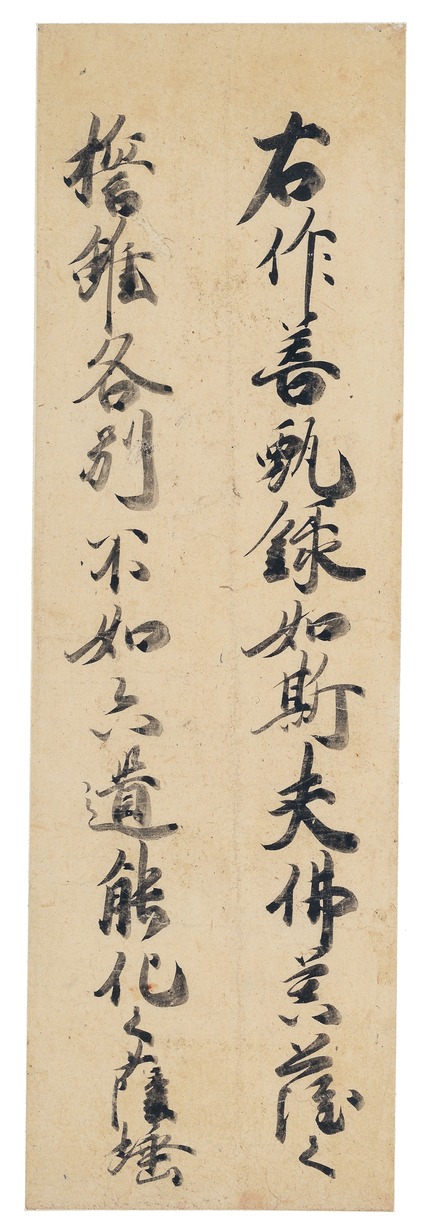 右作善甄録如斯夫佛菩薩之
誓雖各別不如六道能化之薩埵